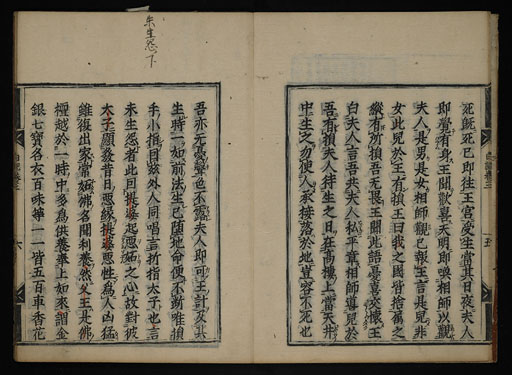 死既死已即往王宮受生當其日夜夫人
即覺有身王聞歡喜天明即喚相師以觀
夫人是男是女相師觀已報王言是兒非
女此兒於王有損王曰我之國皆捨属之
縱有所損吾无畏王聞此語憂喜交懷王
白夫人言吾共夫人私平章相師導兒於
吾有損夫人待生之日在高樓上當天井
中生之勿使人承接落於地豈容不死也
五
未生怨下
吾亦无憂聲色不露夫人即可王計及其
生時一如前法生已墮地命便不斷唯損
手小指因玆外人同唱言折指太子也言
未生怨者此由提婆起惡妬之心故對彼
太子顯教昔日惡縁提婆惡性為人凶猛
雖復出家常妬佛名聞利養然父王是佛
檀越於一時中多為供養奉上如来謂金
銀七寶名衣百味等一一皆五百車香花
六